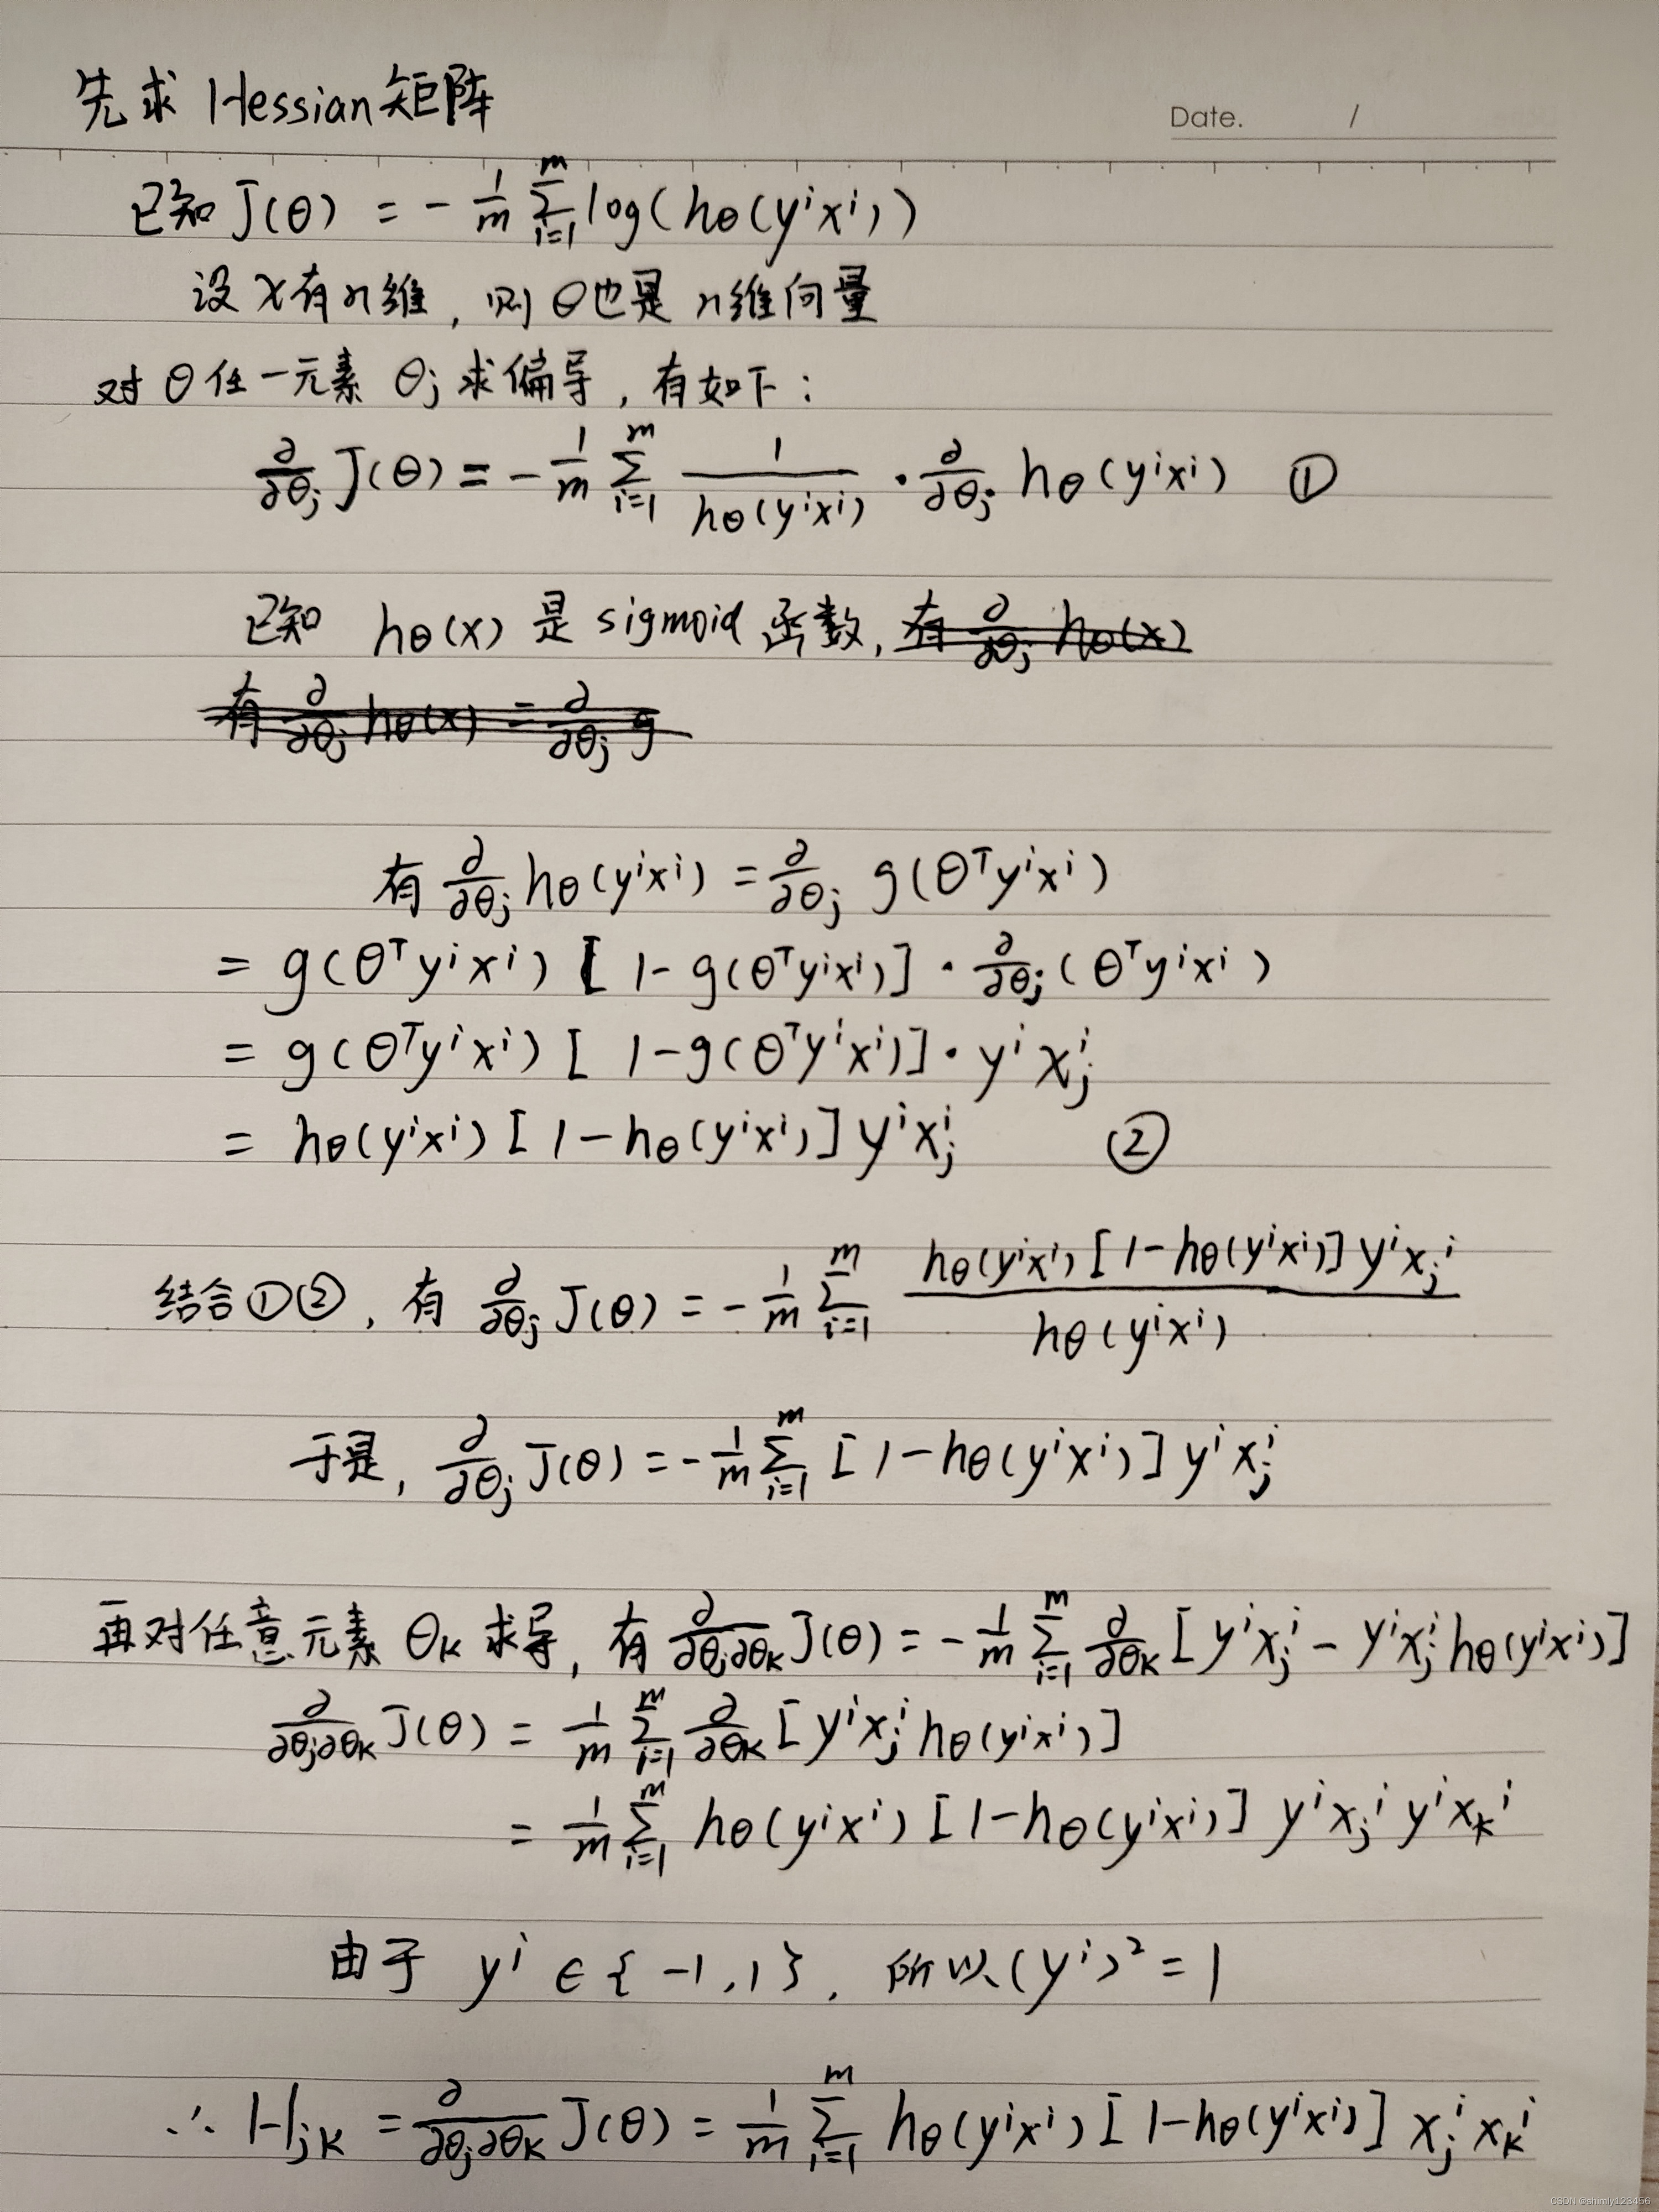 先求 Hessian矩阵
Date. /
已知 J(θ) = - 1/m Σ_{i=1}^{m} log(hθ(yⁱxⁱ))
设 x有n维, 则 θ也是 n维向量
对 θ 任一元素 θⱼ 求偏导, 有如下:
∂/∂θⱼ J(θ) = - 1/m Σ_{i=1}^{m} 1/hθ(yⁱxⁱ) · ∂/∂θⱼ hθ(yⁱxⁱ) ①
已知 hθ(x) 是 sigmoid 函数, 有 ∂/∂θⱼ hθ(x)
有 ∂/∂θⱼ hθ(x) = ∂/∂θⱼ g
有 ∂/∂θⱼ hθ(yⁱxⁱ) = ∂/∂θⱼ g(θᵀyⁱxⁱ)
= g(θᵀyⁱxⁱ) [ 1-g(θᵀyⁱxⁱ)] · ∂/∂θⱼ (θᵀyⁱxⁱ)
= g(θᵀyⁱxⁱ) [ 1-g(θᵀyⁱxⁱ)] · yⁱ xⱼⁱ
= hθ(yⁱxⁱ) [ 1-hθ(yⁱxⁱ)] yⁱxⱼⁱ ②
结合①②, 有 ∂/∂θⱼ J(θ) = - 1/m Σ_{i=1}^{m} hθ(yⁱxⁱ) [1-hθ(yⁱxⁱ)] yⁱxⱼⁱ / hθ(yⁱxⁱ)
于是, ∂/∂θⱼ J(θ) = - 1/m Σ_{i=1}^{m} [ 1-hθ(yⁱxⁱ)] yⁱ xⱼⁱ
再对任意元素 θₖ 求导, 有 ∂/∂θⱼ∂θₖ J(θ) = - 1/m Σ_{i=1}^{m} ∂/∂θₖ [ yⁱxⱼⁱ - yⁱxⱼⁱ hθ(yⁱxⁱ)]
∂/∂θⱼ∂θₖ J(θ) = 1/m Σ_{i=1}^{m} ∂/∂θₖ [yⁱxⱼⁱ hθ(yⁱxⁱ)]
= 1/m Σ_{i=1}^{m} hθ(yⁱxⁱ) [1-hθ(yⁱxⁱ)] yⁱxⱼⁱ yⁱxₖⁱ
由于 yⁱ ∈ {-1,1}, 所以 (yⁱ)² = 1
∴ Hⱼₖ = ∂/∂θⱼ∂θₖ J(θ) = 1/m Σ_{i=1}^{m} hθ(yⁱxⁱ) [1-hθ(yⁱxⁱ)] xⱼⁱ xₖⁱ
CSDN @shimly123456